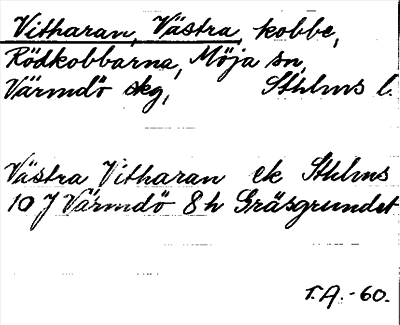 Vitharan, Västra, kobbe,
Rödkobbarna, Möja sn,
Värmdö skg, Sthlms l.
Västra Vitharan ek Sthlms
10 J Värmdö 8 h Gräsgrundet
T.A. -60.